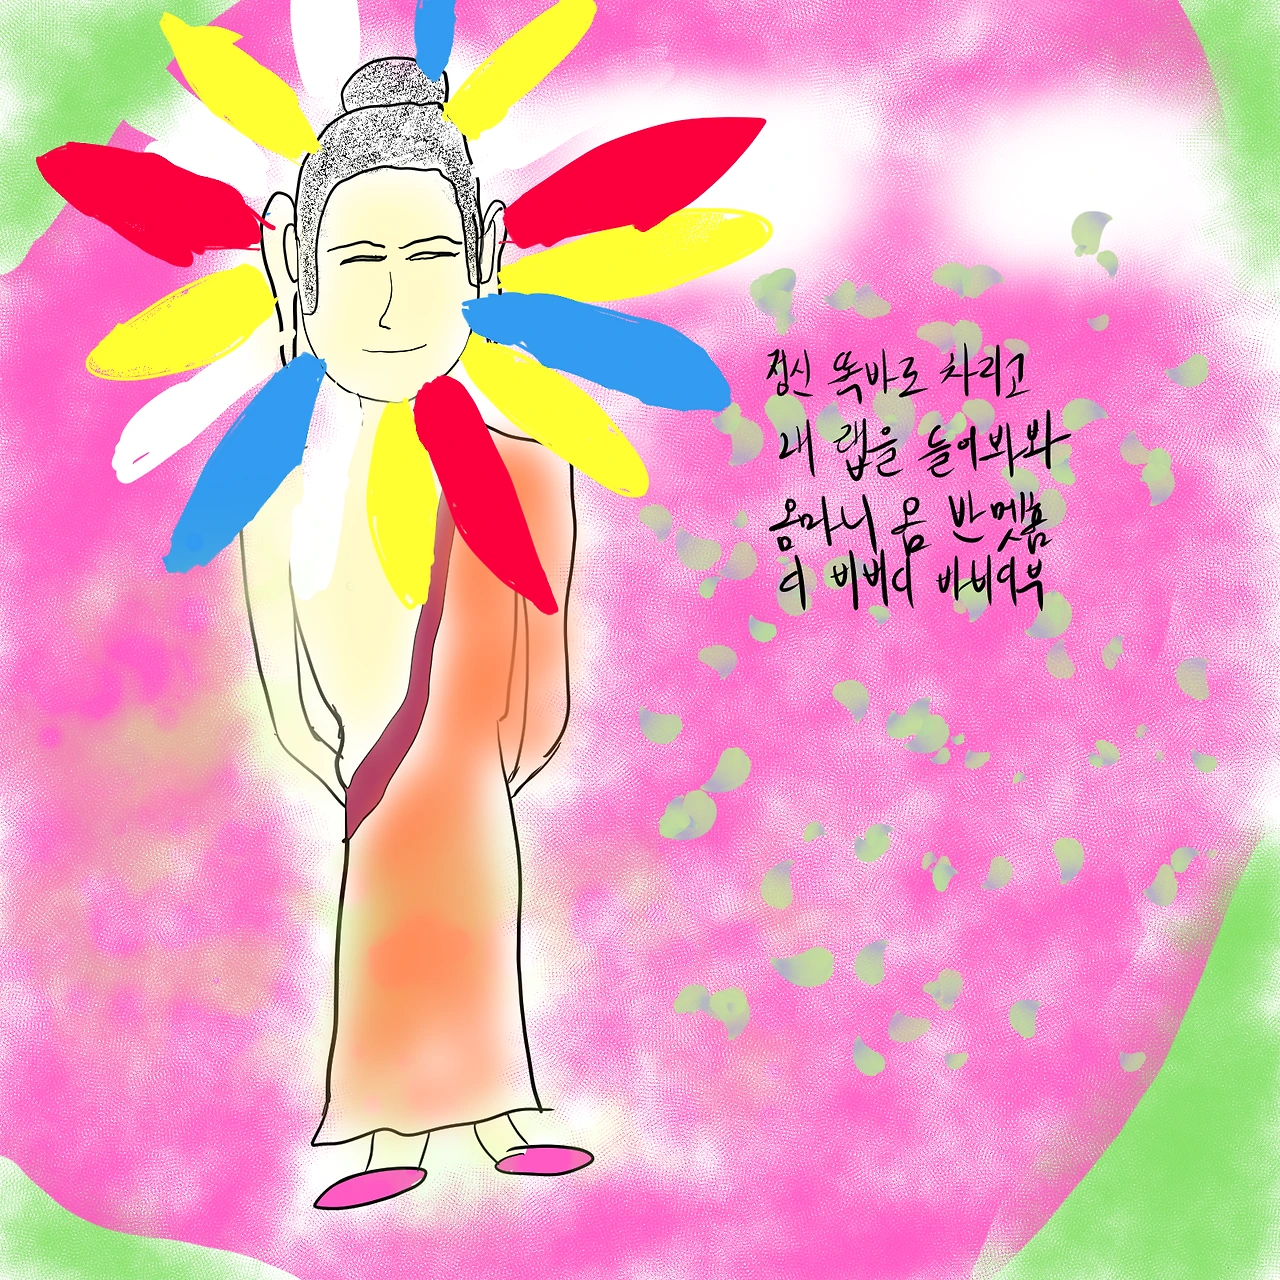 정신 똑바로 차리고
내 랩을 들어봐와
옴마니 옴 반 멧홈
디 비비디 바비디부